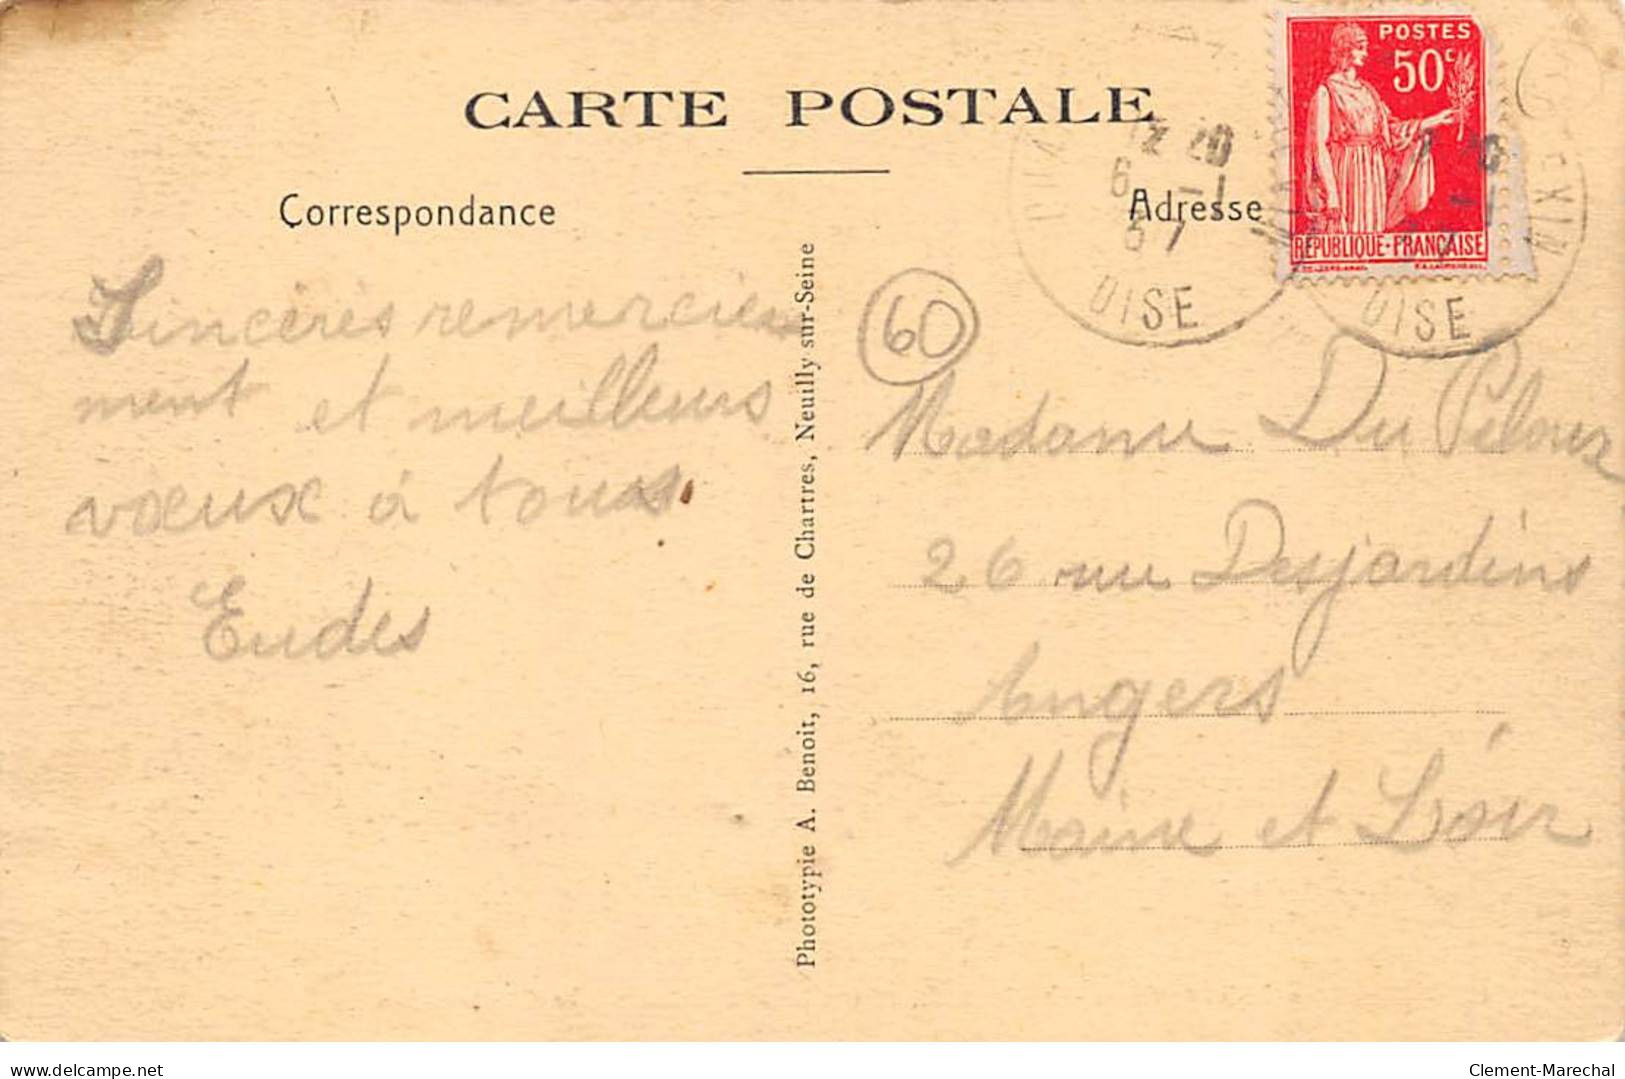 POSTES
50c
RÉPUBLIQUE-FRANÇAISE
CARTE POSTALE
12 20
6 -1
37
OISE
EXIN
OISE
Correspondance
Adresse
Sincères remercie
ment et meilleurs
voeux à tous
Eudes
Phototypie A. Benoit, 16, rue de Chartres, Neuilly sur-Seine
60
Madame Du
26 rue Desjardins
Angers
Maine et Loir
delcampe.net
Clement-Marechal